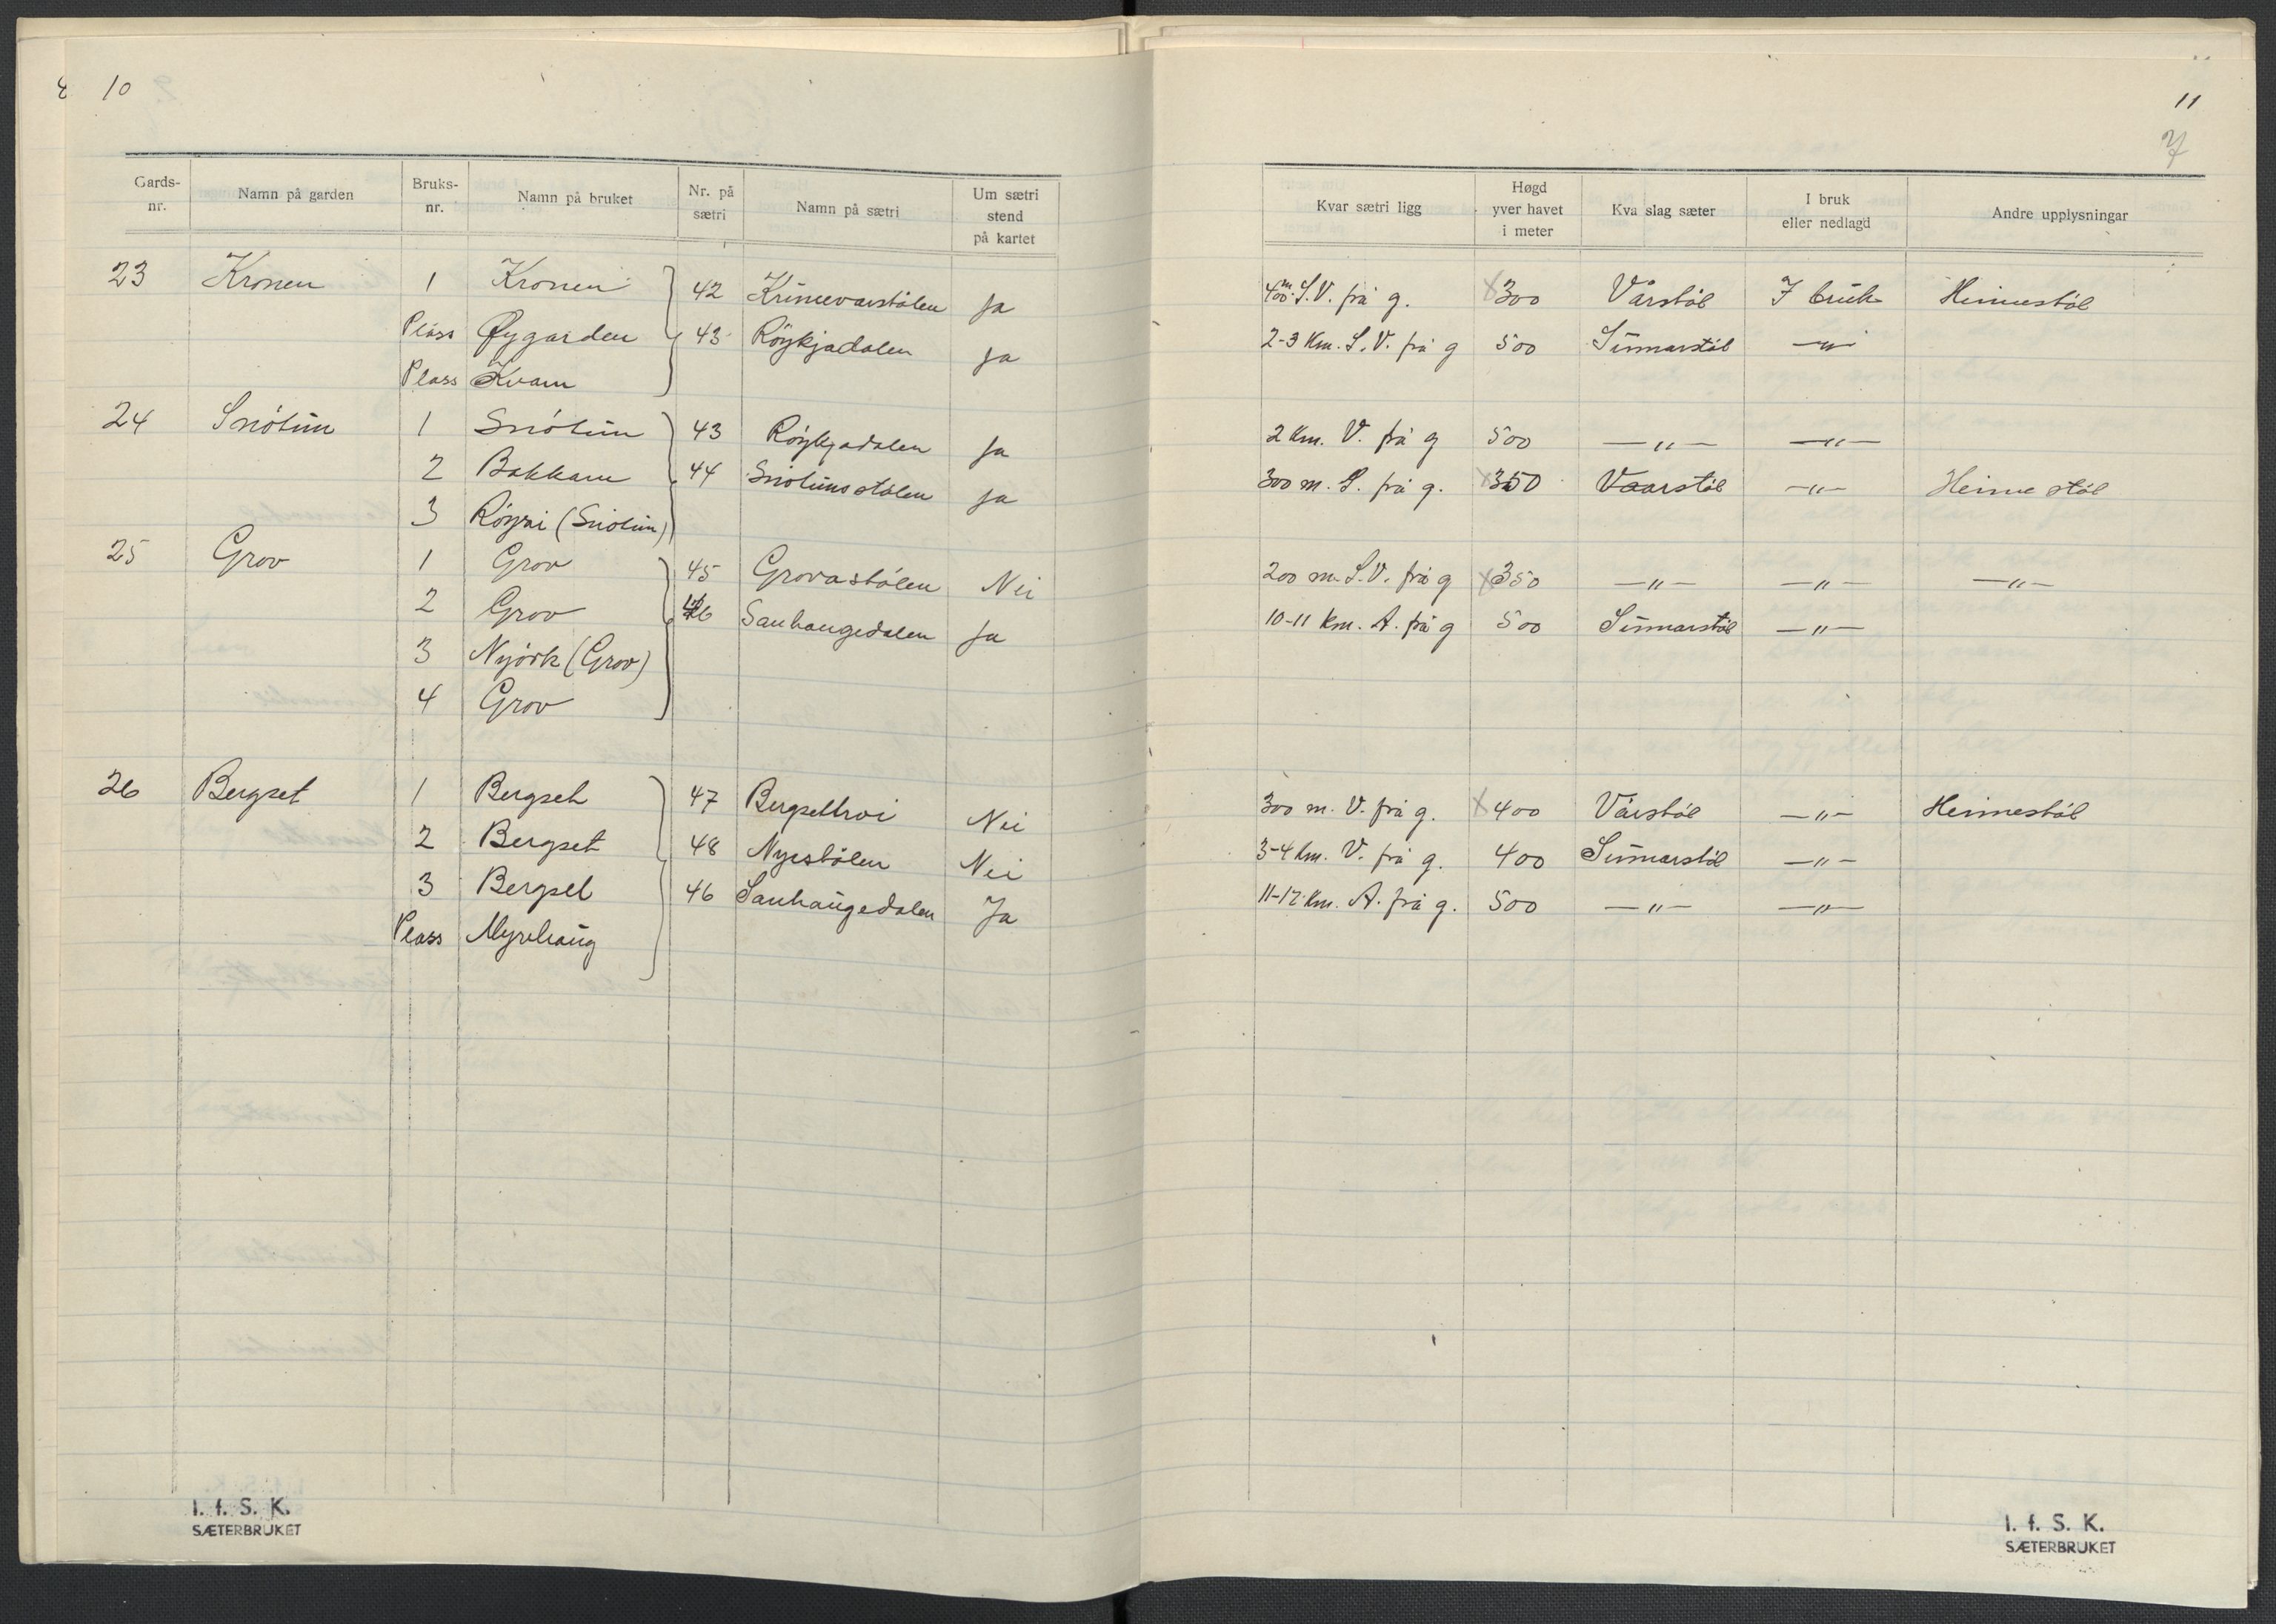 10
Gards-nr. Namn på garden Bruks-nr. Namn på bruket Nr. på sætri Namn på sætri Um sætri stend på kartet
23 Kronen 1 Kronen 42 Krunevarstølen Ja
Plass Øygarden 43 Røykjadalen Ja
Plass Kvam
24 Snøtun 1 Snøtun 43 Røykjadalen Ja
2 Bakkane 44 Snøtunsstølen Ja
3 Røysi (Snøtun)
25 Grov 1 Grov 45 Grovastølen Nei
2 Grov 46 Sauhaugedalen Ja
3 Nyørk (Grov)
4 Grov
26 Bergset 1 Bergset 47 Bergsethovi Nei
2 Bergset 48 Nyestølen Nei
3 Bergset 46 Sauhaugedalen Ja
Plass Myrehaug
I. f. S. K.
SÆTERBRUKET
11
7
Kvar sætri ligg Høgd yver havet i meter Kva slag sæter I bruk eller nedlagd Andre upplysningar
400 m. S.V. frå g. x300 Vårstøl I bruk Heimestøl
2-3 Km. S.V. frå g 500 Sumarstøl -"-
2 Km. V. frå g 500 -"- -"-
300 m. S. frå g. x350 Vaarstøl -"- Heimestøl
200 m. S.V. frå g x350 -"- -"- -"-
10-11 km. A. frå g 500 Sumarstøl -"-
300 m. V. frå g. x400 Vårstøl -"- Heimestøl
3-4 km. V. frå g. 400 Sumarstøl -"-
11-12 Km. A. frå g. 500 -"- -"-
I. f. S. K.
SÆTERBRUKET